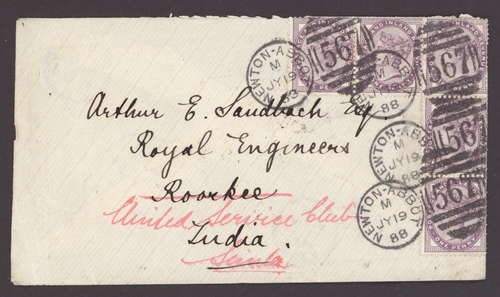 Arthur E. Sandbach Esq.
Royal Engineers
Roorkee
United Service Club
India.
Simla
NEWTON-ABBOT
M
JY 19
88
567
NEWTON-ABBOT
M
88
567
NEWTON-ABBOT
M
JY 19
88
567
NEWTON-ABBOT
M
JY 19
88
567
ONE PENNY